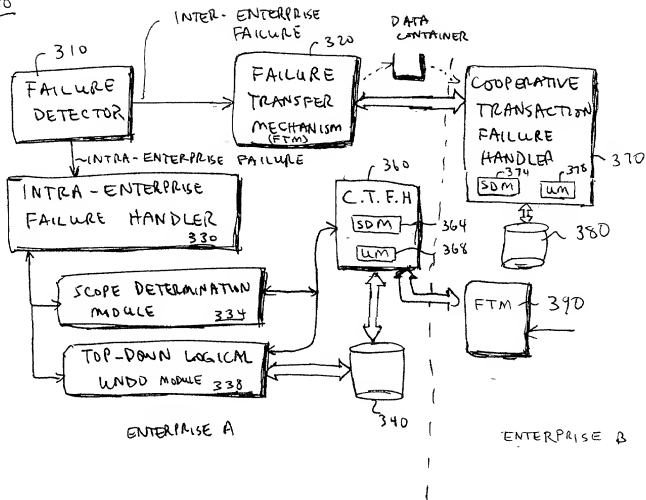 INTER-ENTERPRISE
FAILURE
DATA
CONTAINER
310
320
FAILURE
DETECTOR
FAILURE
TRANSFER
MECHANISM
(FTM)
COOPERATIVE
TRANSACTION
FAILURE
HANDLER
370
374
378
SDM
UM
INTRA-ENTERPRISE FAILURE
INTRA-ENTERPRISE
FAILURE HANDLER
330
360
C.T.F.H
SDM
364
UM
368
380
SCOPE DETERMINATION
MODULE
334
FTM
390
TOP-DOWN LOGICAL
UNDO MODULE
338
340
ENTERPRISE A
ENTERPRISE B